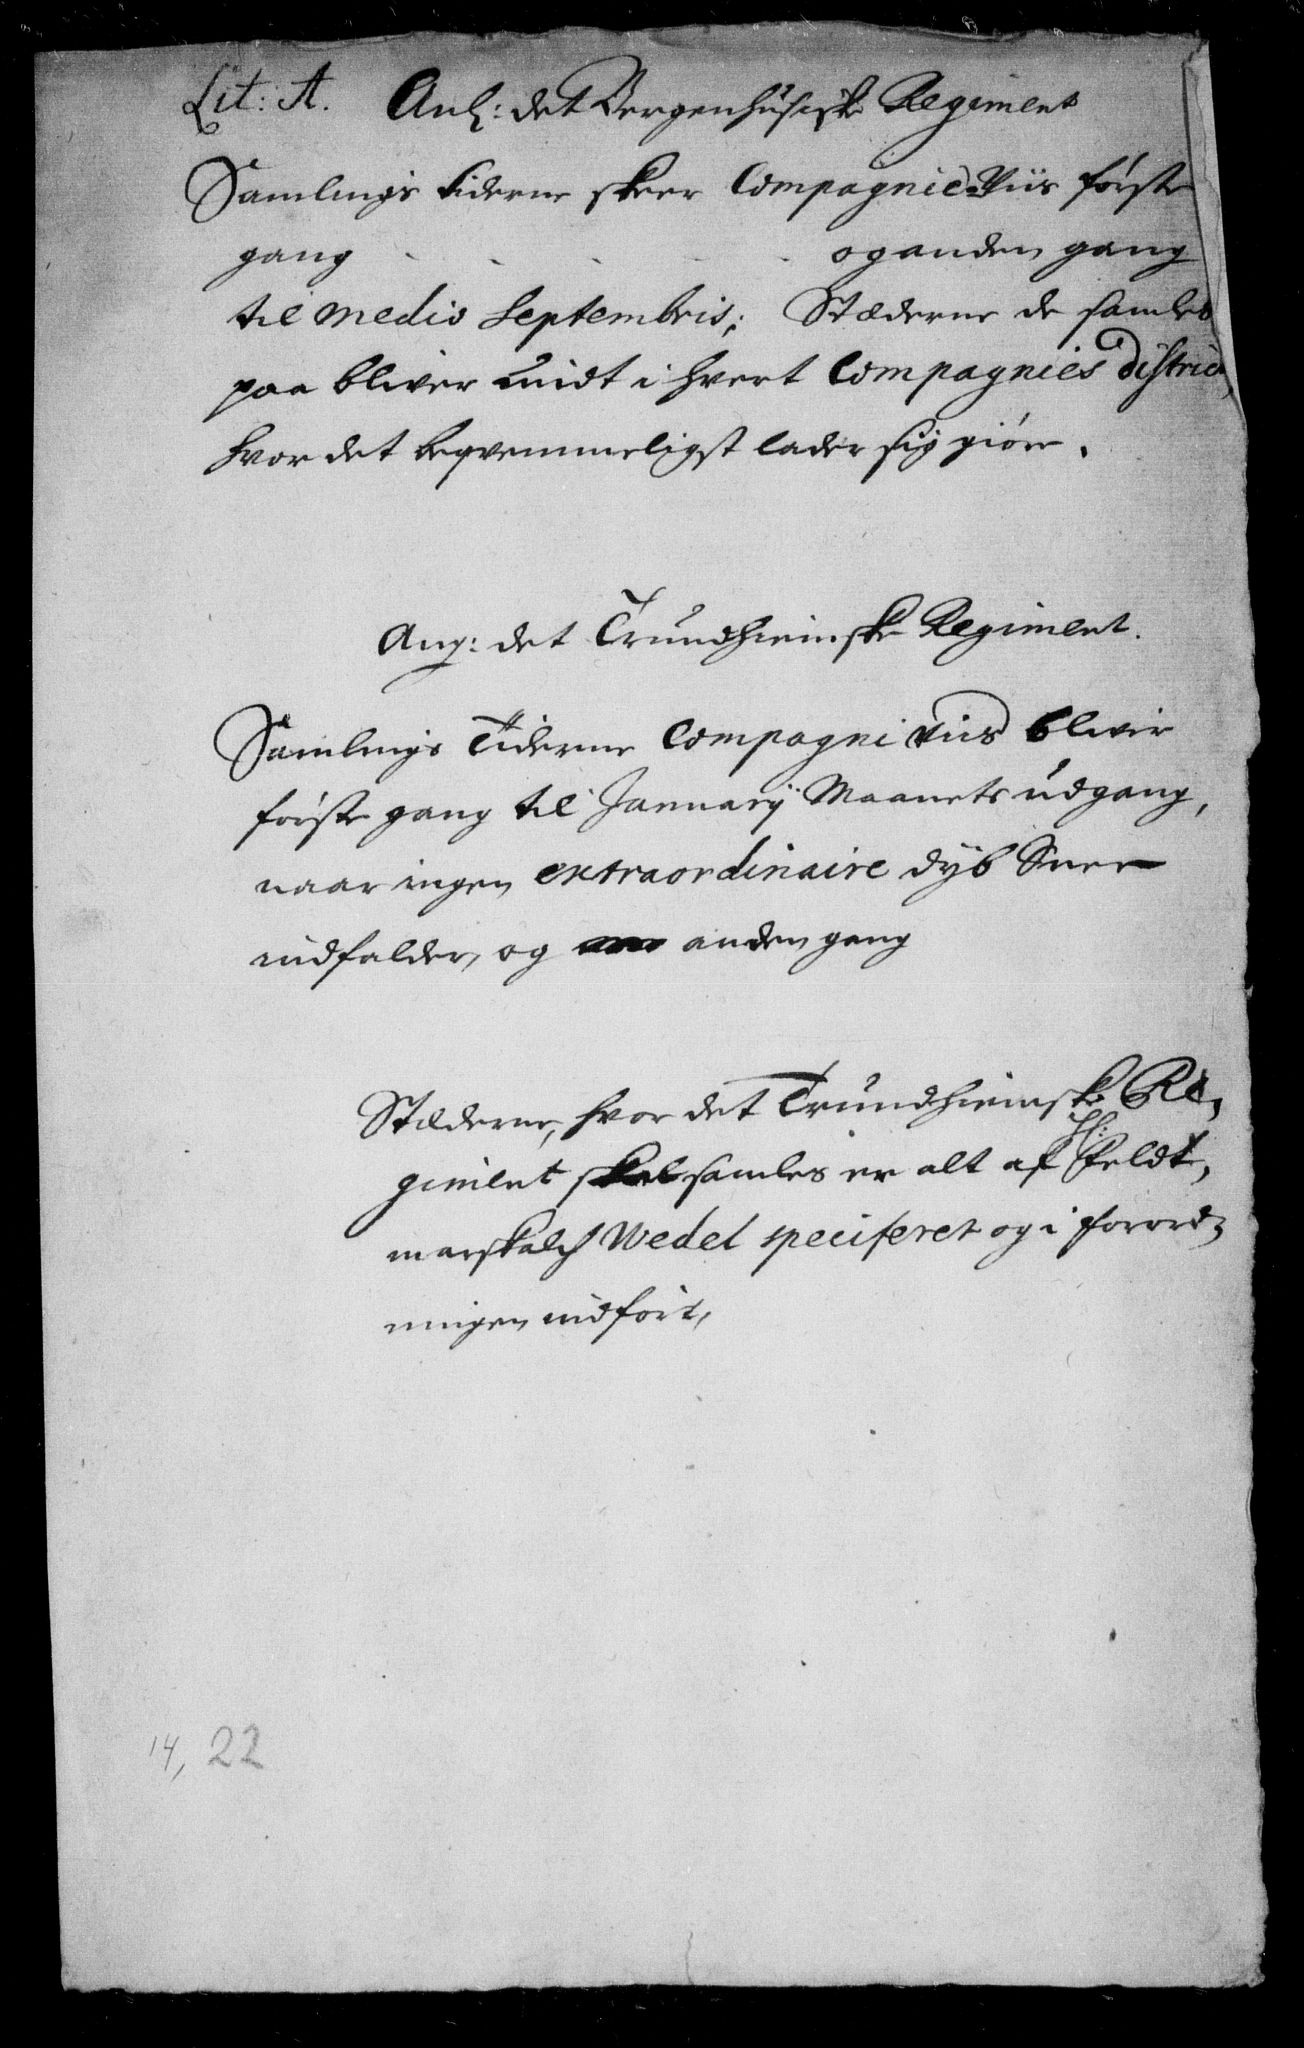 Lit: A. Anl: det Bergenhusiske Regiment
Samlings tiderne skeer Compagnie Viis første
gang - - - - - og anden gang
til medio Septembris; Stæderne de samles
paa bliver midt i hvert Compagnies district,
hvor det beqvemmeligst lader sig giöre.
Ang: det Trundhiemske Regiment.
Samlings Tiderne Compagni viis blivir
förste gang til Januarij Maanets udgang,
naar ingen extraordinaire dÿb Snee
indfalder, og anden gang
Stæderne, hvor det Trundhiemske Re,
giment skal samles er alt af H: Feldt,
marskalch Wedel specificeret og i Forord,
ningen indfört,
14, 22